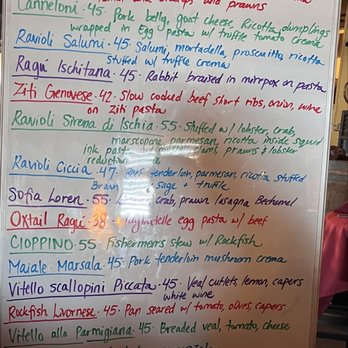 and prawns
Canneloni · 45 · Pork belly, goat cheese, Ricotta, dumplings
wrapped in Egg pasta w/ truffle tomato creme
Ravioli Salumi · 45 · Salumi, mortadella, proscuitto, ricotta
stuffed w/ truffle crema
Ragú Ischitana · 45 · Rabbit braised in mirepox on pasta
Ziti Genovese · 42 · Slow cooked beef short ribs, onion, wine
on Ziti pasta
Ravioli Sirena di Ischia · 55 · Stuffed w/ lobster, crab,
marscapone, parmesan, ricotta inside squid
ink past clams, prawns & lobster
reduction
Ravioli Ciccia · 47 · tenderloin, parmesan, ricotta stuffed
Brown sage + truffle
Sofia Loren · 55 · crab, prawn lasagna Bechamel
Oxtail Ragú · 38 egg pasta w/ beef
Cioppino · 55 · Fishermens stew w/ Rockfish
Maiale Marsala · 45 · Pork tenderloin mushroom crema
Vitello scallopini Piccata · 45 · Veal cutlets, lemon, capers
white wine
Rockfish Livornese · 45 · Pan seared w/ tomato, olives, capers
Vitello alla Parmigiana · 45 · Breaded veal, tomato, cheese